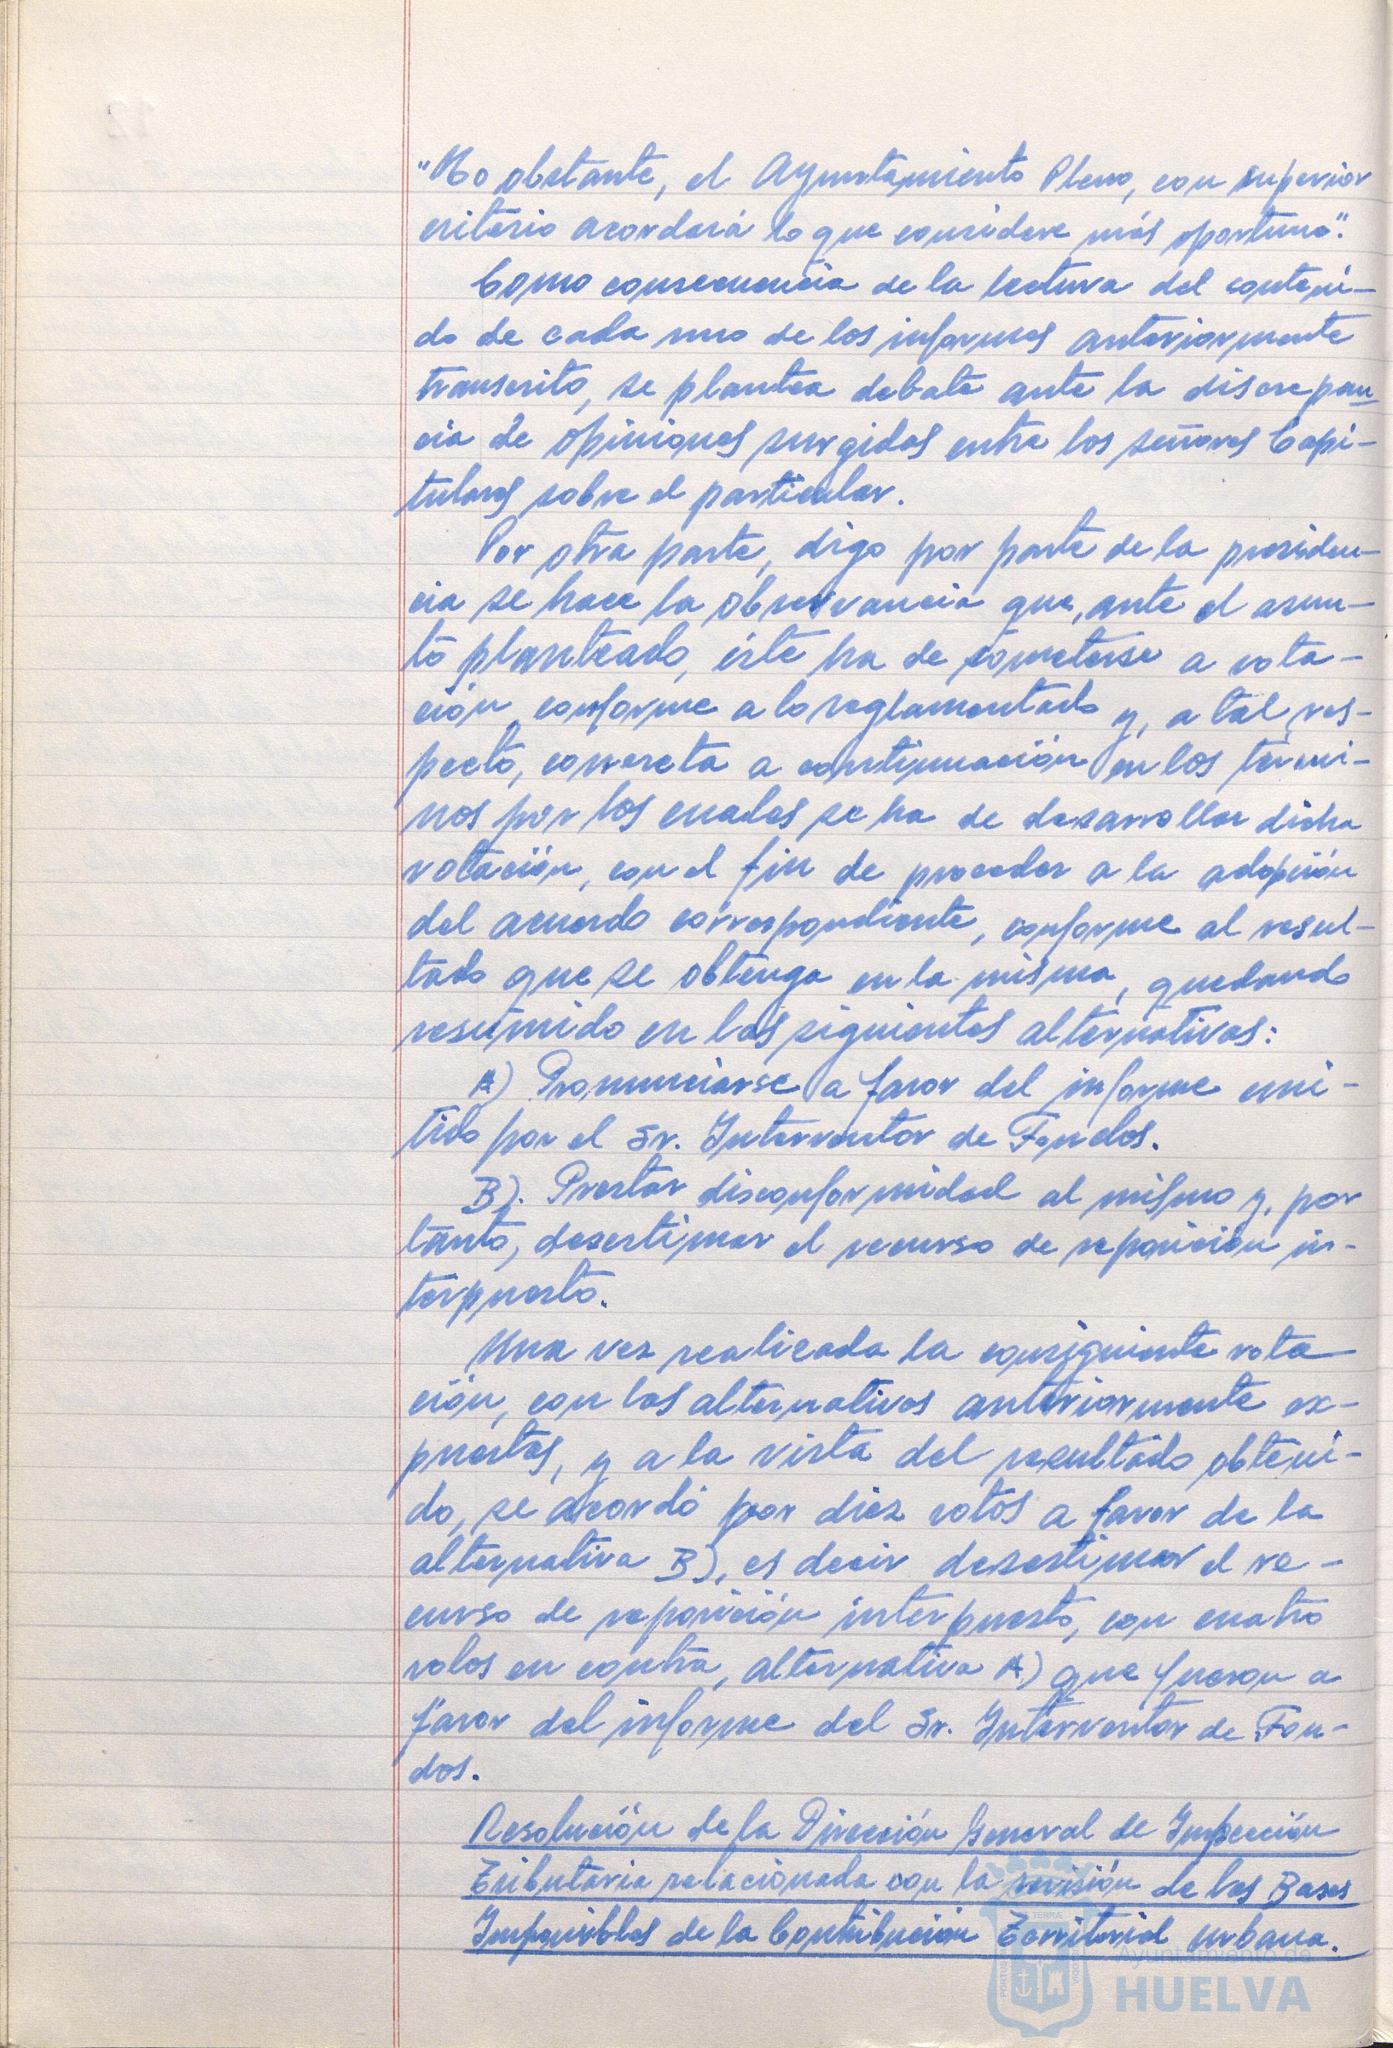 "No obstante, el Ayuntamiento Pleno, con superior
criterio acordará lo que considere más oportuno".
Como consecuencia de la lectura del conteni-
do de cada uno de los informes anteriormente
transcrito, se plantea debate ante la discrepan-
cia de opiniones surgidas entre los señores Capi-
tulares sobre el particular.
Por otra parte, digo por parte de la presiden-
cia se hace la observancia que, ante el asun-
to planteado, éste ha de someterse a vota-
ción, conforme a lo reglamentado y, a tal res-
pecto, concreta a continuación en los térmi-
nos por los cuales se ha de desarrollar dicha
votación, con el fin de proceder a la adopción
del acuerdo correspondiente, conforme al resul-
tado que se obtenga en la misma, quedando
resumido en las siguientes alternativas:
A) Pronunciarse a favor del informe emi-
tido por el Sr. Interventor de Fondos.
B). Prestar disconformidad al mismo y, por
tanto, desestimar el recurso de reposición in-
terpuesto.
Una vez realizada la consiguiente vota
ción, con las alternativas anteriormente ex-
puestas, y a la vista del resultado obteni-
do, se acordó por diez votos a favor de la
alternativa B), es decir desestimar el re-
curso de reposición interpuesto, con cuatro
votos en contra, alternativa A) que fueron a
favor del informe del Sr. Interventor de Fon-
dos.
Resolución de la Dirección General de Inspección
Tributaria relacionada con la revisión de las Bases
Imponibles de la Contribución Territorial urbana.
Ayuntamiento de
HUELVA